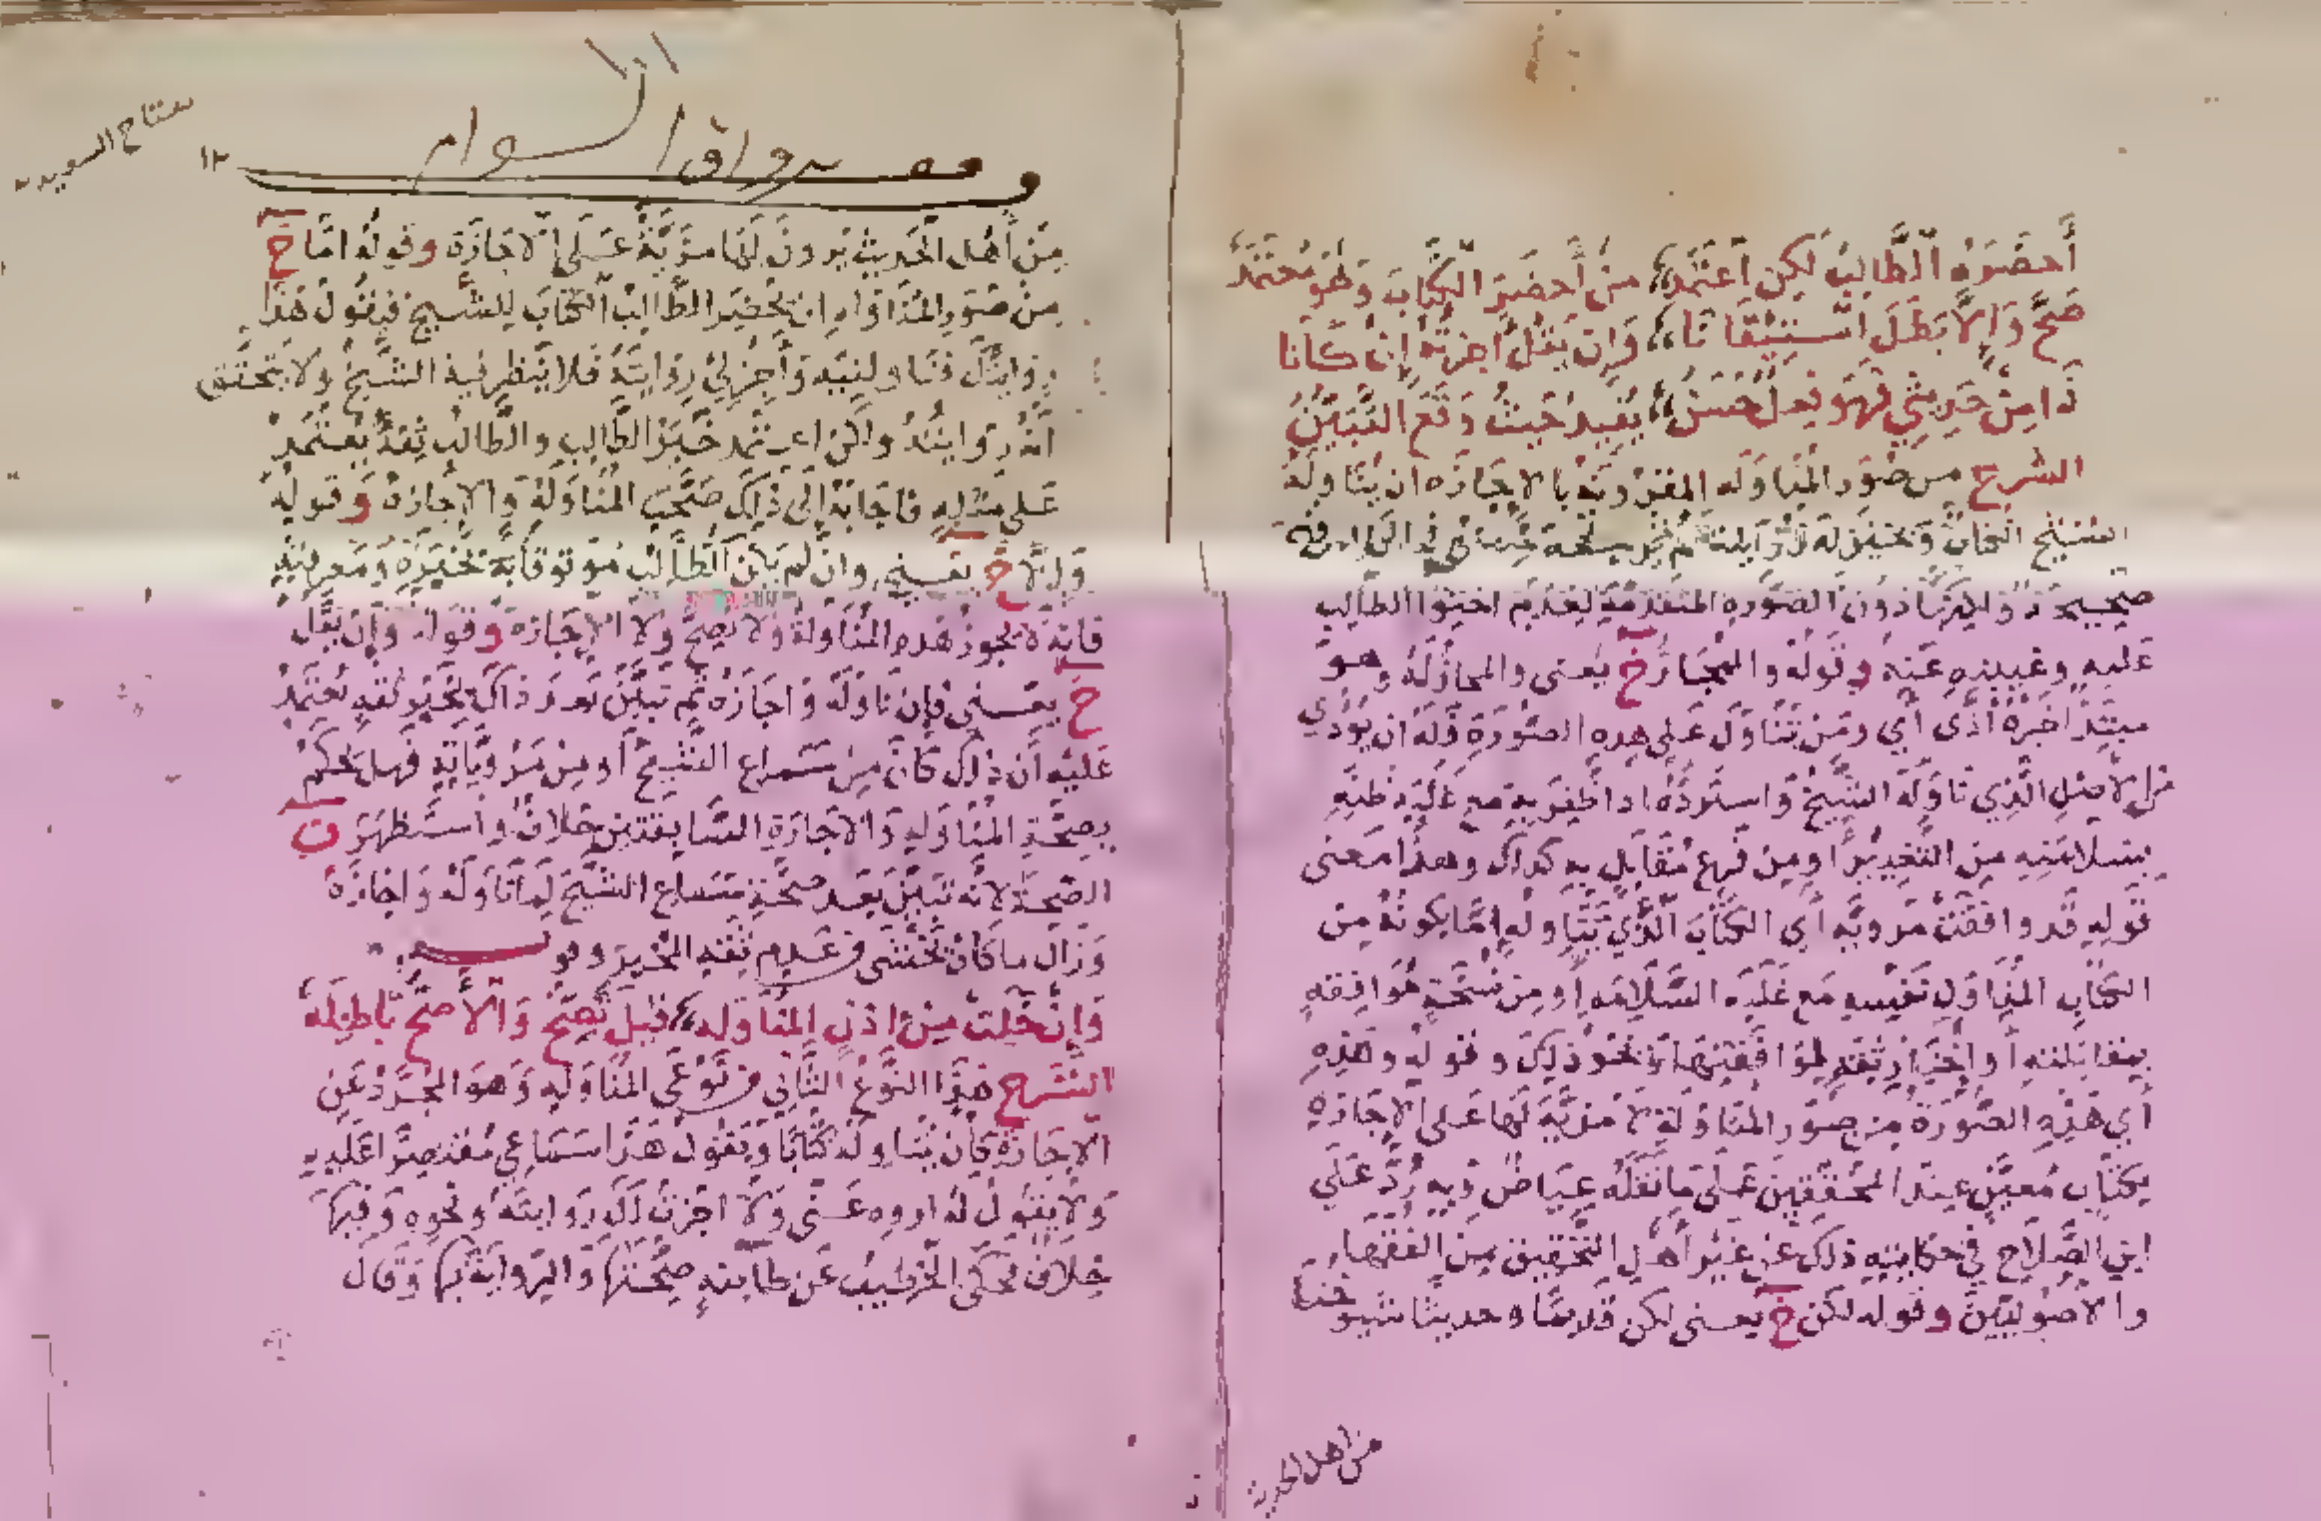 أحضره الطالب لكن اعتمد، من أحضر الكتاب وهو معتمد
صح والا بطل استيقانا، وان يقل أجزته إن كانا
ذا من حديثي فهو فعل حسن، يفيد حيث وقع التبين
الشرح من صور المناولة المقرونة بالاجازه ان يناوله
الشيخ الكتاب
صحيحة دون الصوره المتقدمة لعدم احتوا الطالب
عليه وغيبته عنه وقوله والمجاز خ يعنى والمجاز له وهو
أدى أي ومن تناول على هذه الصورة فله ان يؤدي
من الاصل الذي ناوله الشيخ واسترده اذا ظفر به مع غلبة ظنه
بسلامته من التغيير او من فرع مقابل به كذلك وهذا معنى
قوله قد وافقت مرويه أي الكتاب الذي تناوله إما بكونه من
الكتاب المناول نفسه مع غلبه السلامه أو من نسخة موافقه
بمقابلته أو إخبار ثقه لموافقتها ونحو ذلك وقوله وهذه
أي هذه الصورة من صور المناولة لا مزية لها على الاجازه
بكتاب معين عند المحققين على ما نقله عياض وبه رد على
ابن الصلاح في حكايته ذلك عن غير أهل التحقيق من الفقها
والاصوليين وقوله لكن خ يعنى لكن قديما وحديثا شيوخنا
من اهل الحديث
من أهل الحديث يرون لها مزية على الاجازة وقوله اما خ
من صور المناوله ان يحضر الطالب الكتاب للشيخ فيقول هذا
روايتك فناولنيه وأجز لي روايته فلا ينظر فيه الشيخ ولا يتحقق
انه روايته ولكن اعتمد خبر الطالب والطالب ثقة يعتمد
على مثله فاجابه إلى ذلك صحت المناولة والاجازة وقوله
وإلا خ يعنى وان لم يكن الطالب موثوقا به بخبره ومعرفته
فانه لا يجوز هذه المناولة ولا تصح ولا الاجازه وقوله وإن يقل
خ يعنى فإن ناوله واجازه ثم تبين بعد ذلك بخبر ثقه يعتمد
عليه أن ذلك كان من سماع الشيخ أو من مروياته فهل يحكم
بصحة المناوله والاجازة السابقتين خلاف واستظهر ن
الصحة لانه تبين بعد صحة سماع الشيخ لما ناوله واجازه
وزال ما كان يخشى من عدم ثقه المخبر
وإن خلت من إذن المناوله، قيل تصح والأصح باطله
الشرح هذا النوع الثاني من نوعي المناوله وهو المجرد عن
الاجازة كأن يناوله كتابا ويقول هذا سماعي مقتصرا عليه
ولا يقول له اروه عنى ولا اجزت لك روايته ونحوه وفيها
خلاف فحكى الخطيب عن طايفه صحتها والروايه بها وقال